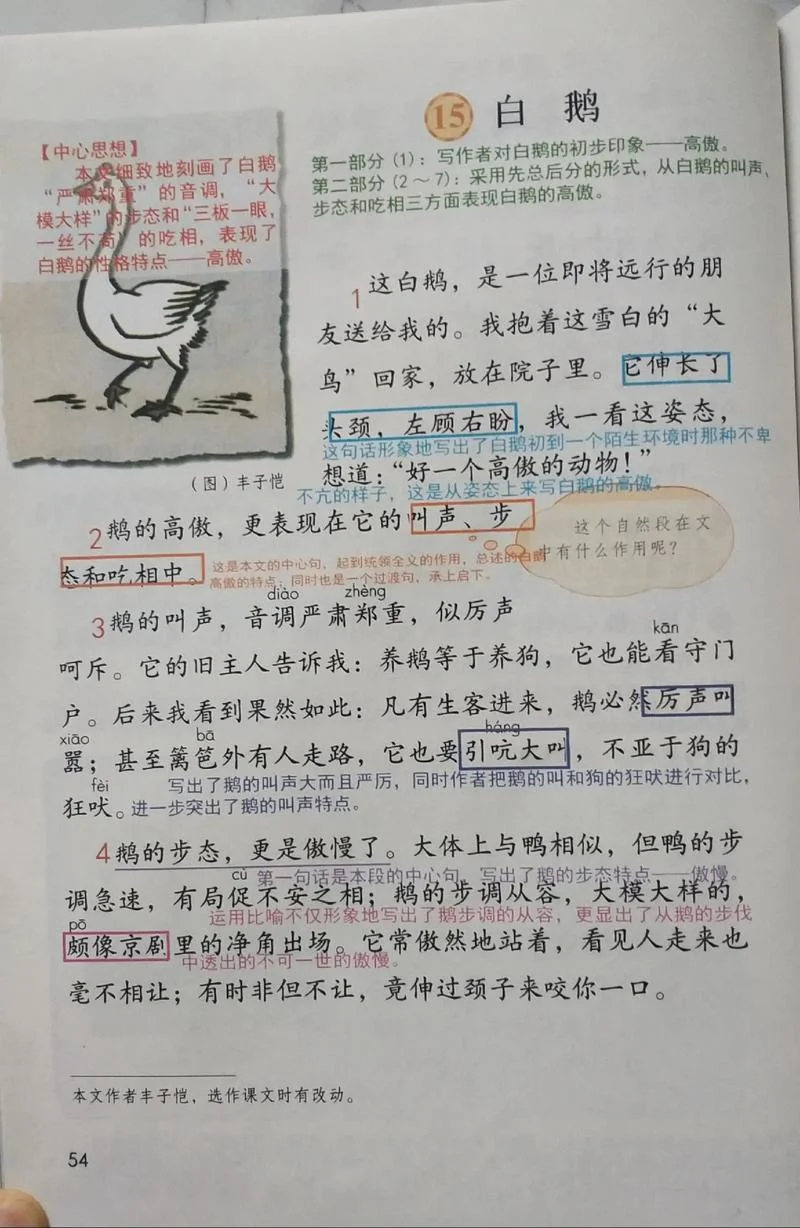 15 白 鹅
【中心思想】
本文细致地刻画了白鹅
“严肃郑重”的音调，“大
模大样”的步态和“三板一眼，
一丝不苟”的吃相，表现了
白鹅的性格特点——高傲。
第一部分（1）：写作者对白鹅的初步印象——高傲。
第二部分（2～7）：采用先总后分的形式，从白鹅的叫声、
步态和吃相三方面表现白鹅的高傲。
（图）丰子恺
1 这白鹅，是一位即将远行的朋
友送给我的。我抱着这雪白的“大
鸟”回家，放在院子里。它伸长了
头颈，左顾右盼，我一看这姿态，
这句话形象地写出了白鹅初到一个陌生环境时那种不卑
想道：“好一个高傲的动物！”
不亢的样子，这是从姿态上来写白鹅的高傲。
2 鹅的高傲，更表现在它的叫声、步
这个自然段在文
中有什么作用呢？
态和吃相中。
这是本文的中心句，起到统领全文的作用，总述的白鹅
高傲的特点；同时也是一个过渡句，承上启下。
diào zhèng
3 鹅的叫声，音调严肃郑重，似厉声
kān
呵斥。它的旧主人告诉我：养鹅等于养狗，它也能看守门
户。后来我看到果然如此：凡有生客进来，鹅必然厉声叫
xiāo bā háng
嚣；甚至篱笆外有人走路，它也要引吭大叫，不亚于狗的
fèi 写出了鹅的叫声大而且严厉，同时作者把鹅的叫和狗的狂吠进行对比，
狂吠。进一步突出了鹅的叫声特点。
4 鹅的步态，更是傲慢了。大体上与鸭相似，但鸭的步
cù 第一句话是本段的中心句，写出了鹅的步态特点——傲慢。
调急速，有局促不安之相；鹅的步调从容，大模大样的，
pō 运用比喻不仅形象地写出了鹅步调的从容，更显出了从鹅的步伐
颇像京剧里的净角出场。它常傲然地站着，看见人走来也
中透出的不可一世的傲慢。
毫不相让；有时非但不让，竟伸过颈子来咬你一口。
本文作者丰子恺，选作课文时有改动。
54